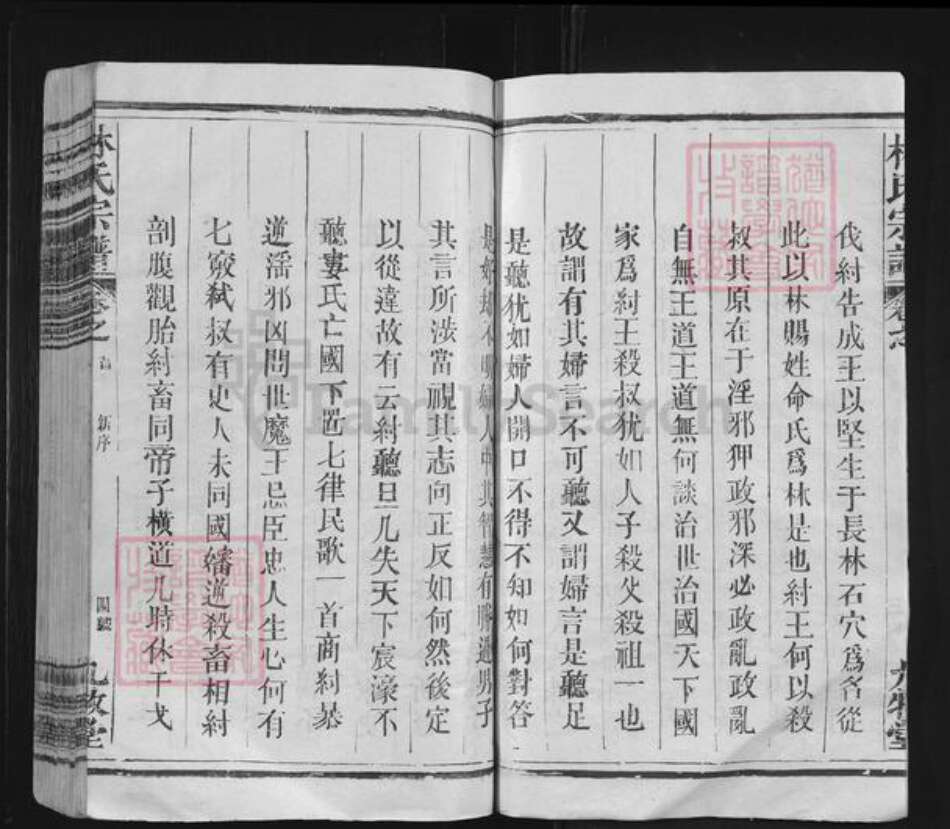 伐紂告成王以堅生于長林石穴爲名從
此以林賜姓命氏爲林是也紂王何以殺
叔其原在于淫邪狎政邪深必政亂政亂
自無王道王道無何談治世治國天下國
家爲紂王殺叔犹如人子殺父殺祖一也
故謂有其婦言不可聽又謂婦言是聽足
是聽犹如婦人開口不得不知如何對答
人中其智慧有勝過男子
其言所涉當視其志向正反如何然後定
以從違故有云紂聽旦几失天下宸濠不
聽婁氏亡國下置七律民歌一首商紂暴
逆滛邪凶問世魔王忌臣忠人生心何有
七竅弑叔有史人未同國繙逆殺畜相紂
剖腹觀胎紂畜同帝子橫道几時休干戈
林氏宗譜
卷之
首
新序
閩綫
九牧堂
FamilySearch